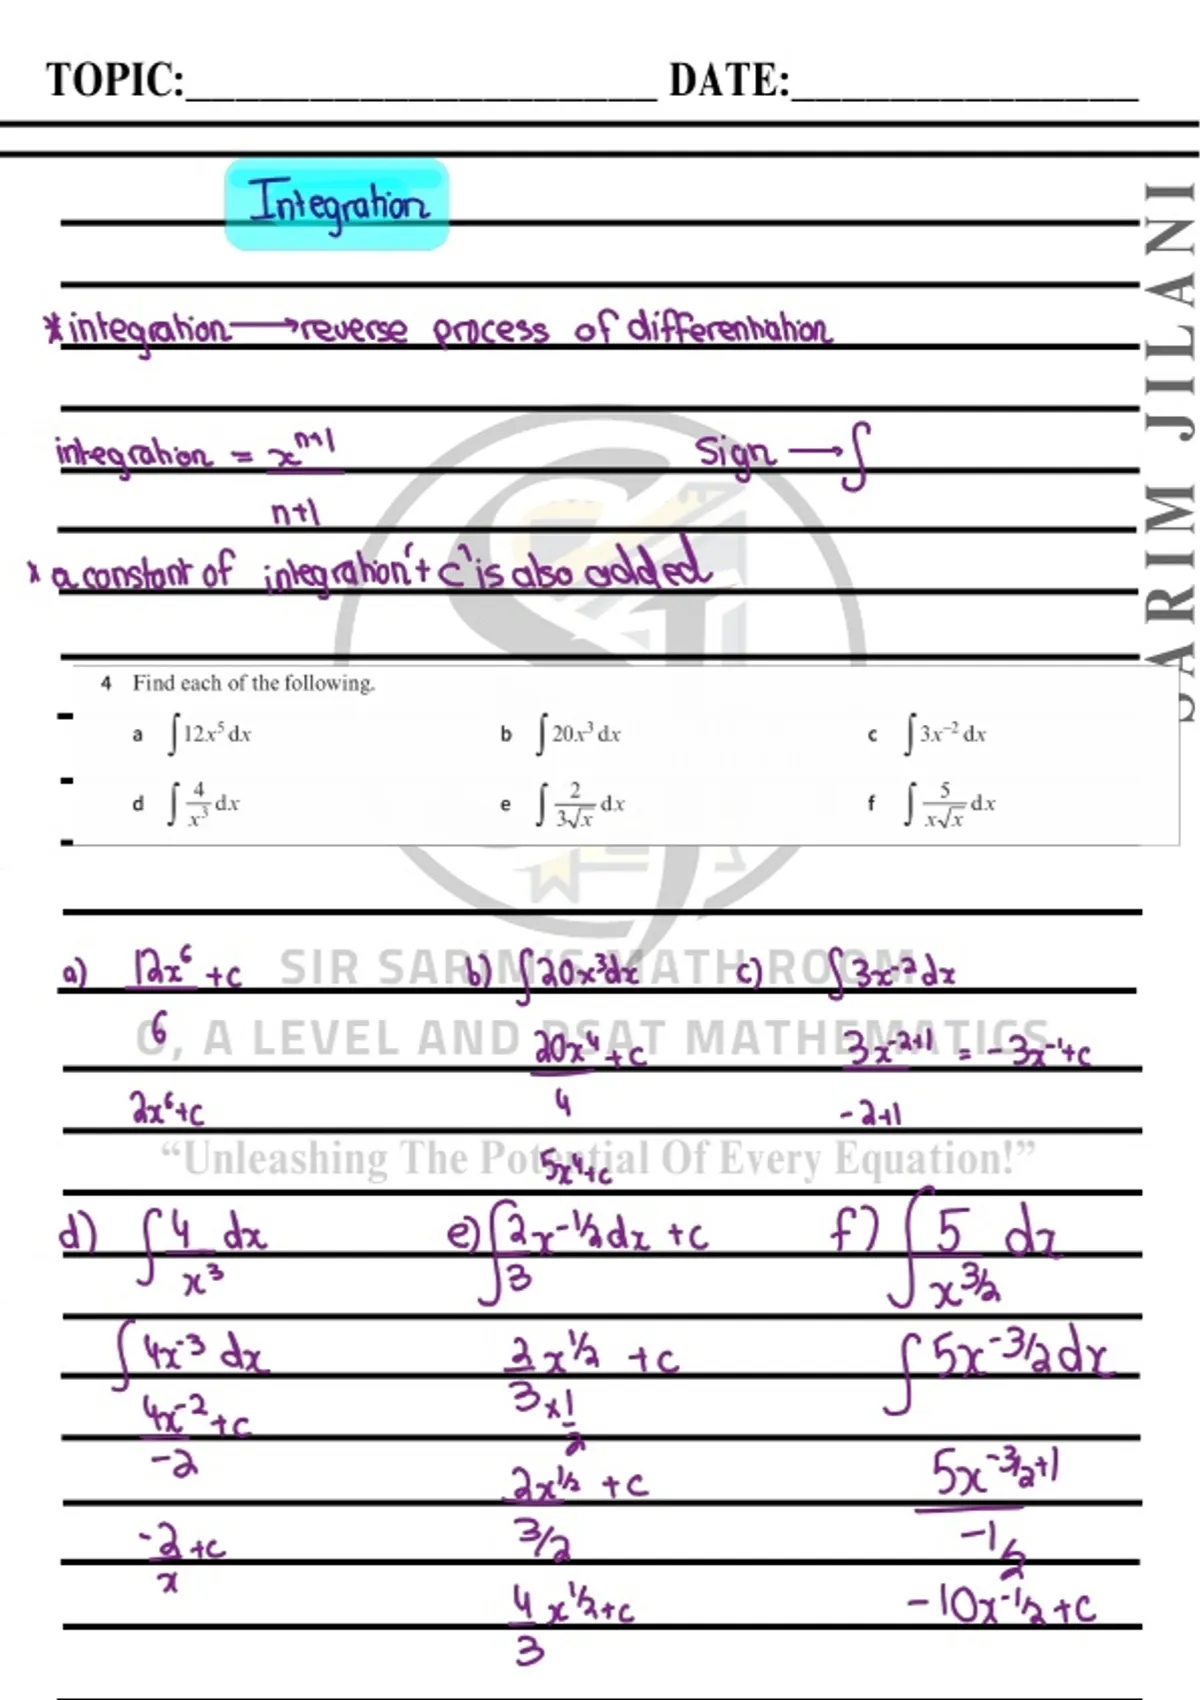 TOPIC:___________________ DATE:______________
Integration
* integration → reverse process of differentiation
integration = x^(n+1) / n+1    Sign → ∫
* a constant of integration '+ c' is also added
SARIM JILANI
4 Find each of the following.
a ∫12x⁵ dx    b ∫20x³ dx    c ∫3x⁻² dx
d ∫ 4/x³ dx    e ∫ 2/(3√x) dx    f ∫ 5/(x√x) dx
SIR SARIM'S MATH ROOM
O, A LEVEL AND PSAT MATHEMATICS
"Unleashing The Potential Of Every Equation!"
a) 12x⁶/6 + c
2x⁶ + c
b) ∫20x³dx
20x⁴/4 + c
5x⁴ + c
c) ∫3x⁻² dx
3x^(-2+1) / -2+1 = -3x⁻¹ + c
d) ∫ 4/x³ dx
∫ 4x⁻³ dx
4x⁻²/-2 + c
-2/x + c
e) ∫ 2/3 x^(-1/2) dx + c
2/(3 × 1/2) x^(1/2) + c
2x^(1/2) / (3/2) + c
4/3 x^(1/2) + c
f) ∫ 5/x^(3/2) dx
∫ 5x^(-3/2) dx
5x^(-3/2+1) / (-1/2)
-10x^(-1/2) + c